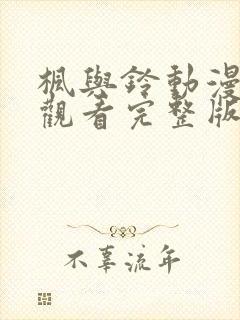 楓與鈴動漫
觀看完整版
不辜流年